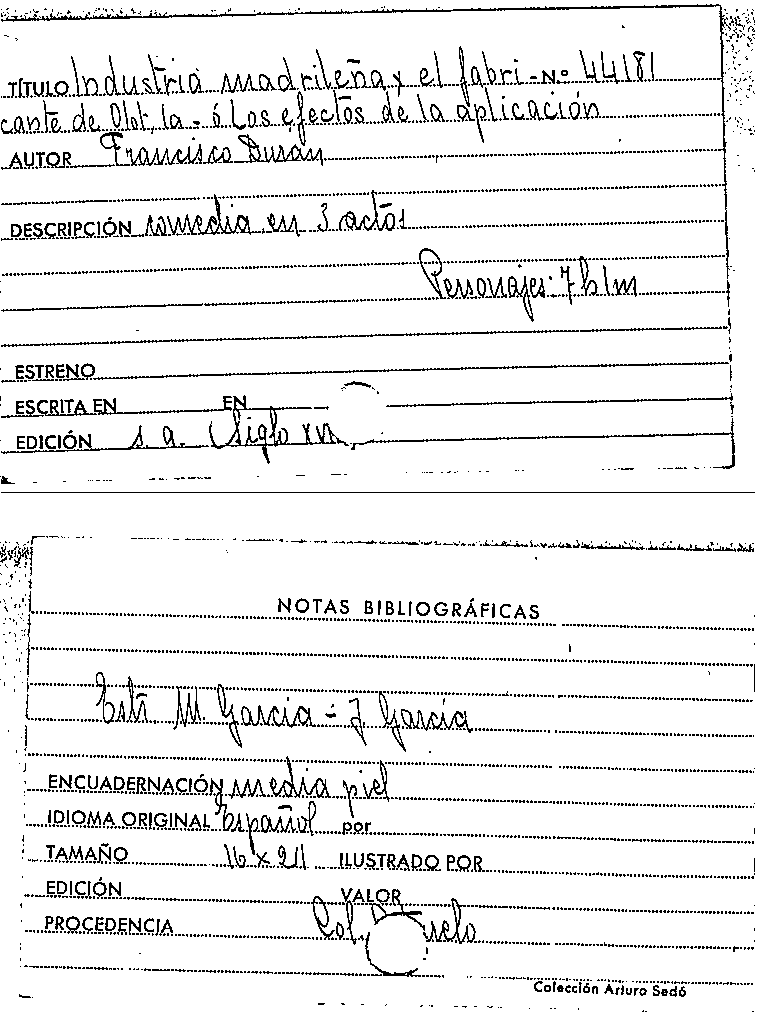 TÍTULO Industria madrileña y el fabri - N.º 44181
cante de Olot, la - ó Los efectos de la aplicación
AUTOR Francisco Durán
DESCRIPCIÓN comedia en 3 actos
Personajes: 7 h 1 m
ESTRENO
ESCRITA EN EN
EDICIÓN s. a. (Siglo
NOTAS BIBLIOGRÁFICAS
M. Garcia - J. García
ENCUADERNACIÓN media piel
IDIOMA ORIGINAL Español por
TAMAÑO 16 x 21 ILUSTRADO POR
EDICIÓN VALOR
PROCEDENCIA Col.
Colección Arturo Sedó